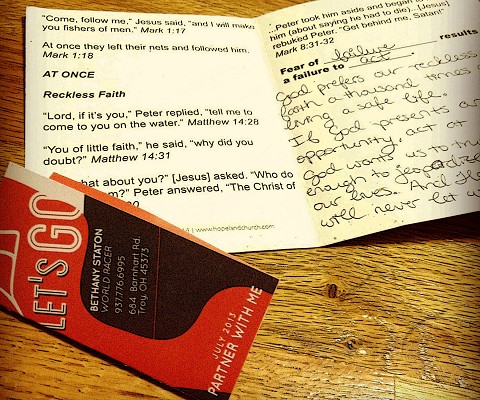 "Come, follow me," Jesus said, "and I will make
you fishers of men." Mark 1:17
At once they left their nets and followed him.
Mark 1:18
AT ONCE
Reckless Faith
"Lord, if it's you," Peter replied, "tell me to
come to you on the water." Matthew 14:28
"You of little faith," he said, "why did you
doubt?" Matthew 14:31
what about you?" [Jesus] asked. "Who do
Peter answered, "The Christ of
| www.hopelandchurch.com
...Peter took him aside and began to
him (about saying he had to die)...[Jesus]
rebuked Peter. "Get behind me, Satan!"
Mark 8:31-32
Fear of failure results
a failure to act
God prefers our reckless
faith a thousand times
living a safe life.
If God presents our
opportunity, act at
God wants us to tru
enough to jeopardize
our lives. And He
will never let u
LET'S GO
BETHANY STATON
WORLD RACER
937.776.6995
684 Barnhart Rd.
Troy, OH 45373
JULY 2013
PARTNER WITH ME